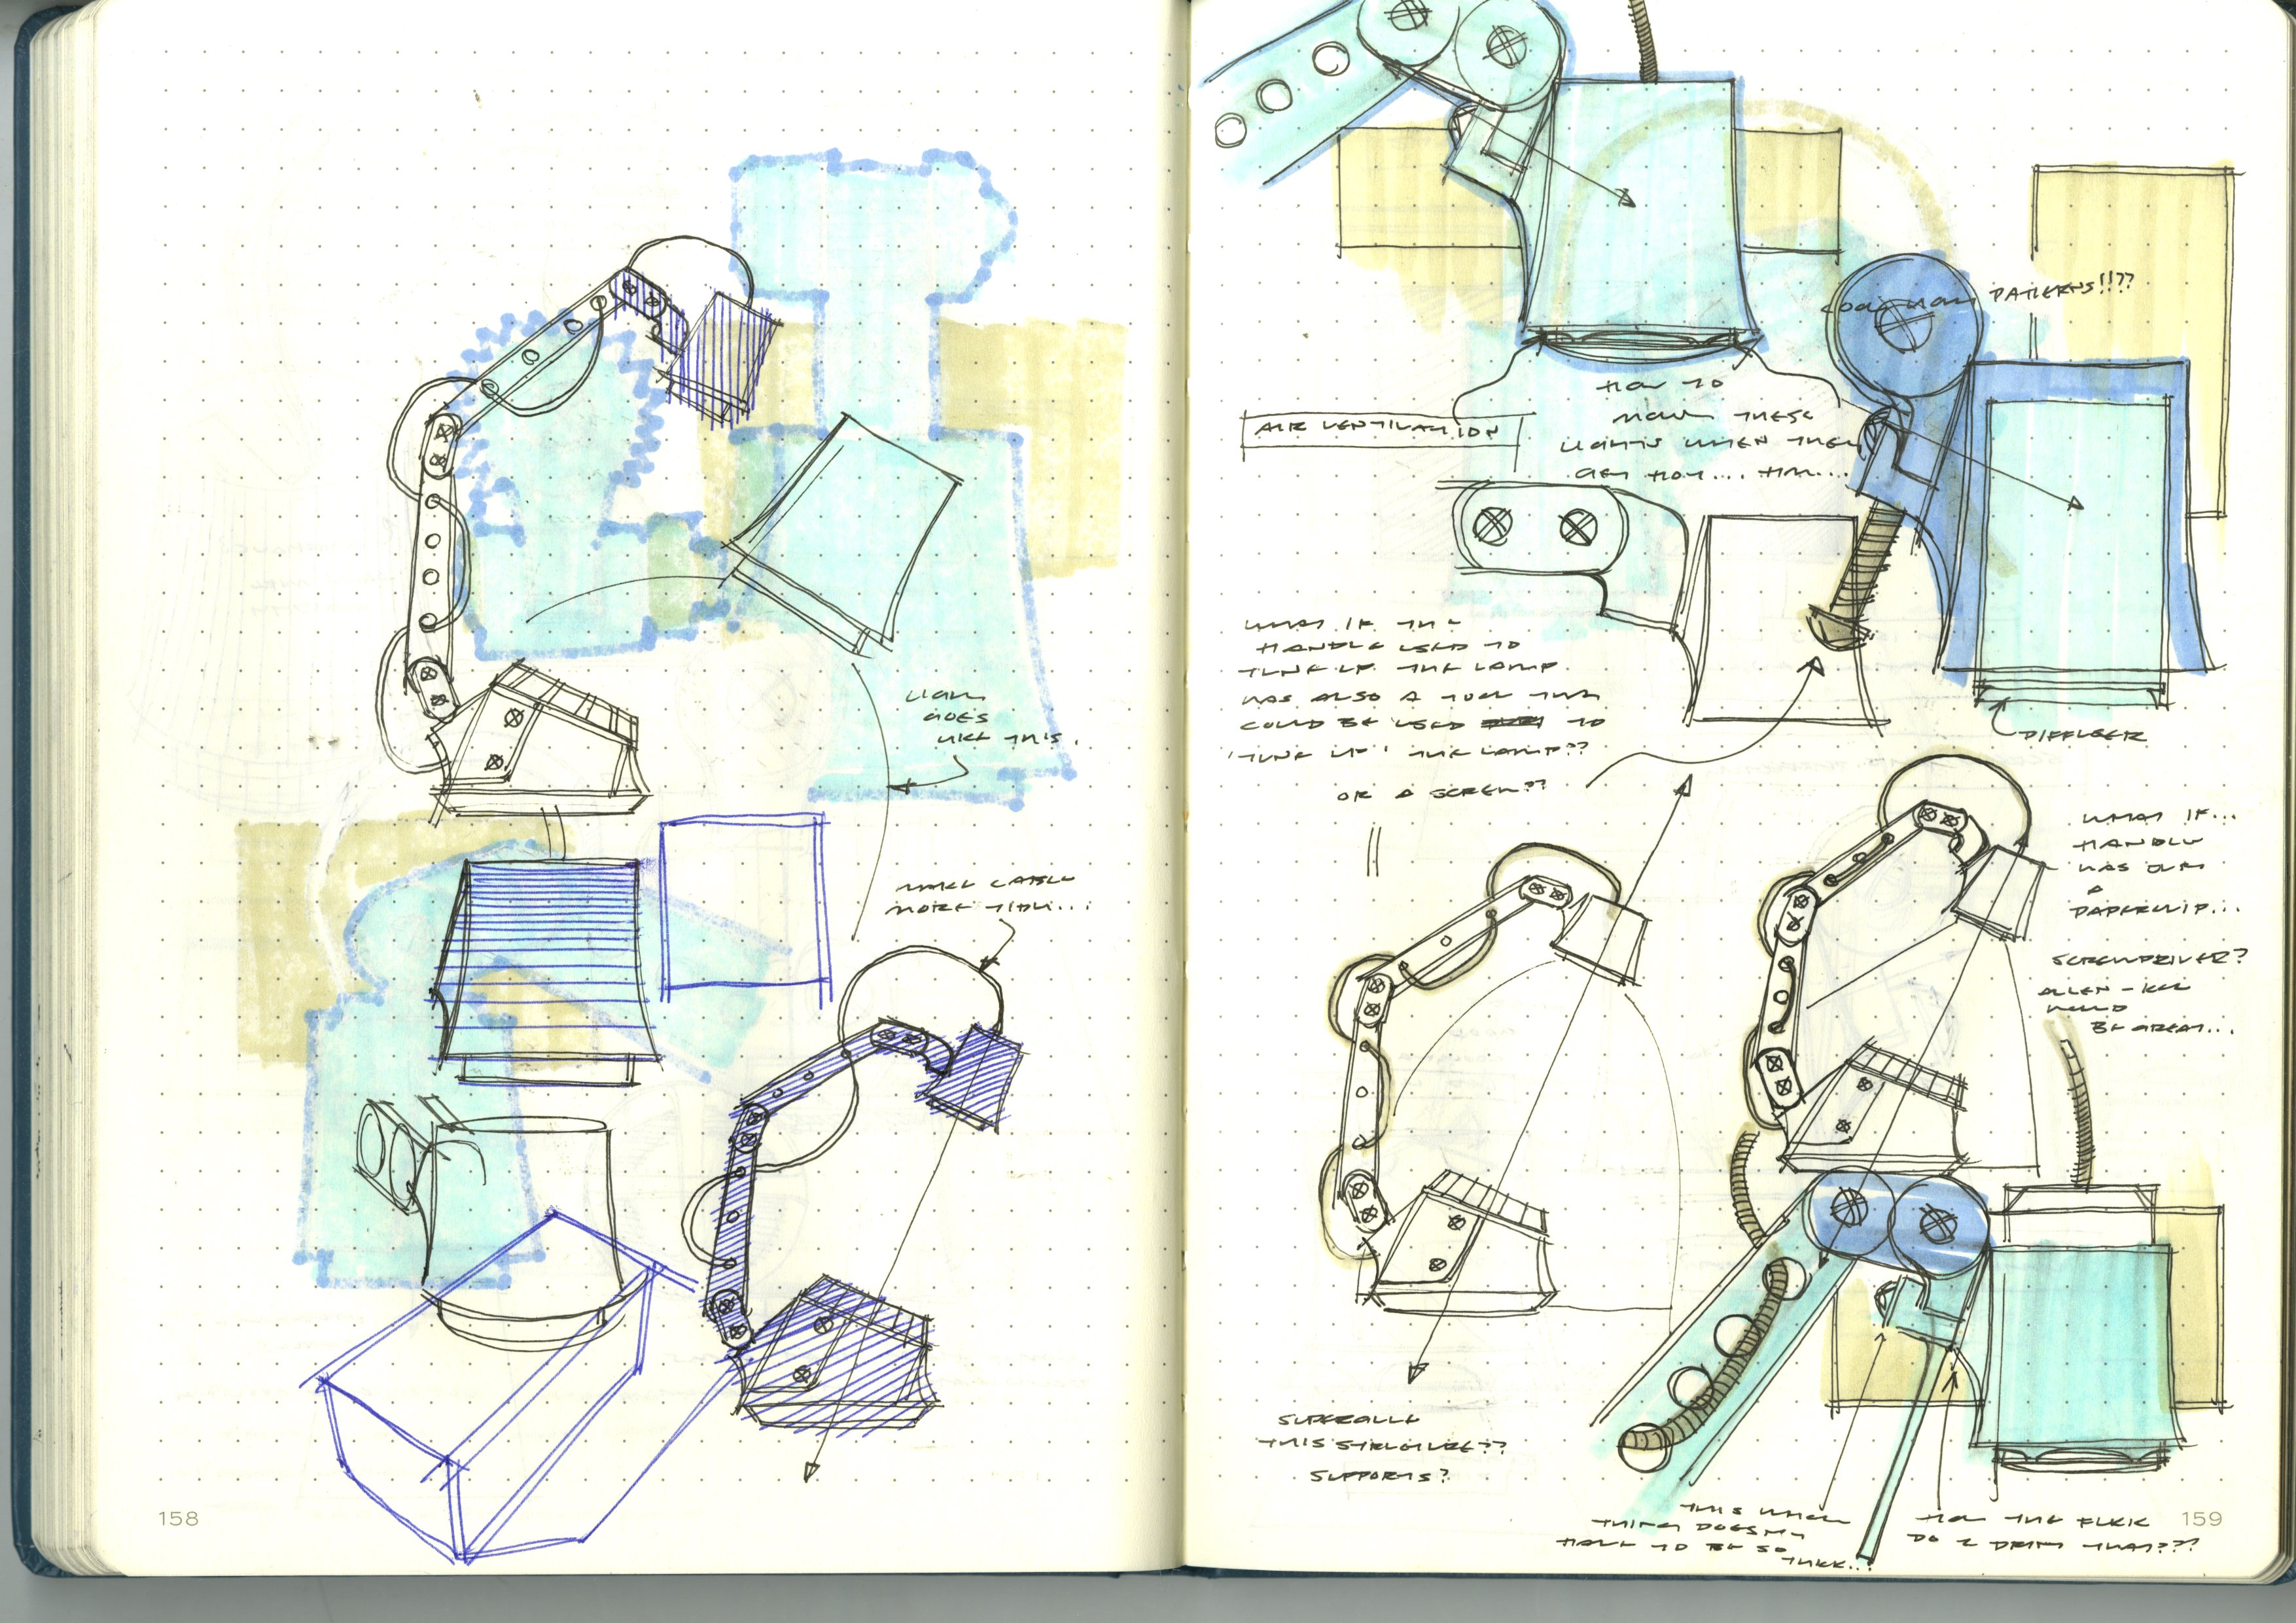 LIGHT
GOES
LIKE THIS.
MAKE CABLE
MORE THIN...
158
PATTERNS!!??
HOW TO
MOVE THESE
LIGHTS WHEN THEY
GET HOT.... HM....
AIR VENTILATION
WHAT IF THE
HANDLE USED TO
TUNE UP THE LAMP
WAS ALSO A TOOL THAT
COULD BE USED TO
'TUNE UP' THE LAMP??
OR A SCREW??
DIFFUSER
WHAT IF...
HANDLE
WAS JUST
A
PAPERCLIP...
SCREWDRIVER?
ALLEN-KEY
WOULD
BE GREAT...
SUPERGLUE
THIS STRUCTURE??
SUPPORTS?
THIS WHOLE
THING DOESN'T
HAVE TO BE SO
THICK...
HOW THE FUCK
DO I PRINT THAT???
159